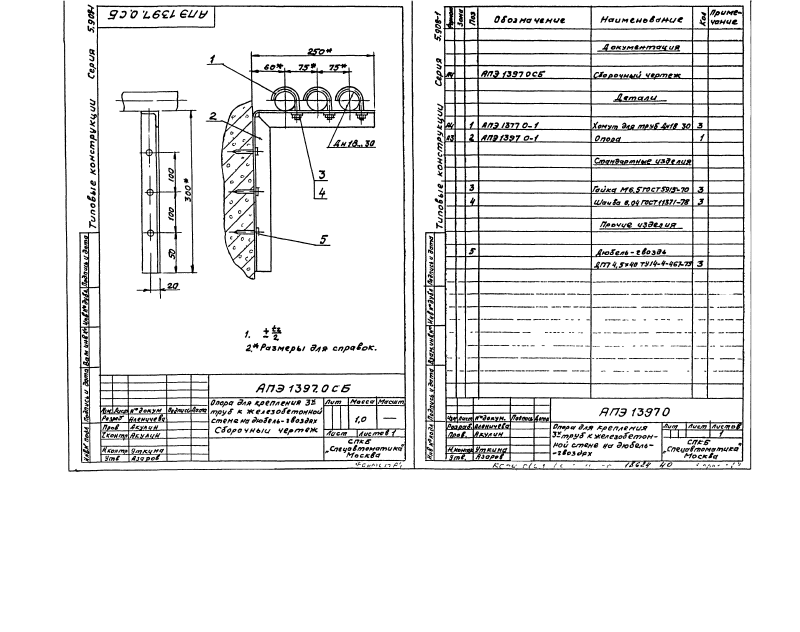 Серия 5.908-1
Типовые конструкции
АПЭ 1397.0 СБ
250*
60* 75* 75*
1
2
Дн 18...30
3
4
5
100
100
50
300*
20
1. ± t₂/2
2.* Размеры для справок.
Подпись и дата
Взам инв №
Подпись и дата
Инв № подл
АПЭ 1397.0 СБ
Изм Лист № докум Подпись Дата
Разраб Аленичева
Пров Акулин
Т.контр Акулин
Н.контр Уткина
Утв Азаров
Опора для крепления 3х
труб к железобетонной
стене на дюбель-гвоздях
Сборочный чертеж
Лит Масса Масшт
1,0 —
Лист Листов 1
СПКБ
„Спецавтоматика"
Москва
Серия 5.908-1
Типовые конструкции
Формат Зона Поз Обозначение Наименование Кол Примечание
Документация
А4 АПЭ 1397.0 СБ Сборочный чертеж
Детали
А4 1 АПЭ 1377.0-1 Хомут для труб Дн 18 30 3
А3 2 АПЭ 1397.0-1 Опора 1
Стандартные изделия
3 Гайка М6.5 ГОСТ 5915-70 3
4 Шайба 6.04 ГОСТ 11371-78 3
Прочие изделия
5 Дюбель-гвоздь
ДГП 4,5×40 ТУ14-4-462-73 3
Подпись и дата
Инв № дубл
Взам инв №
Подпись и дата
Инв № подл
АПЭ 1397.0
Изм Лист № докум. Подпись Дата
Разраб. Аленичева
Пров. Акулин
Н.контр Уткина
Утв. Азаров
Опора для крепления
3х труб к железобетон-
ной стене на дюбель-
-гвоздях
Лит Лист Листов
1
СПКБ
„Спецавтоматика"
Москва
18624 40